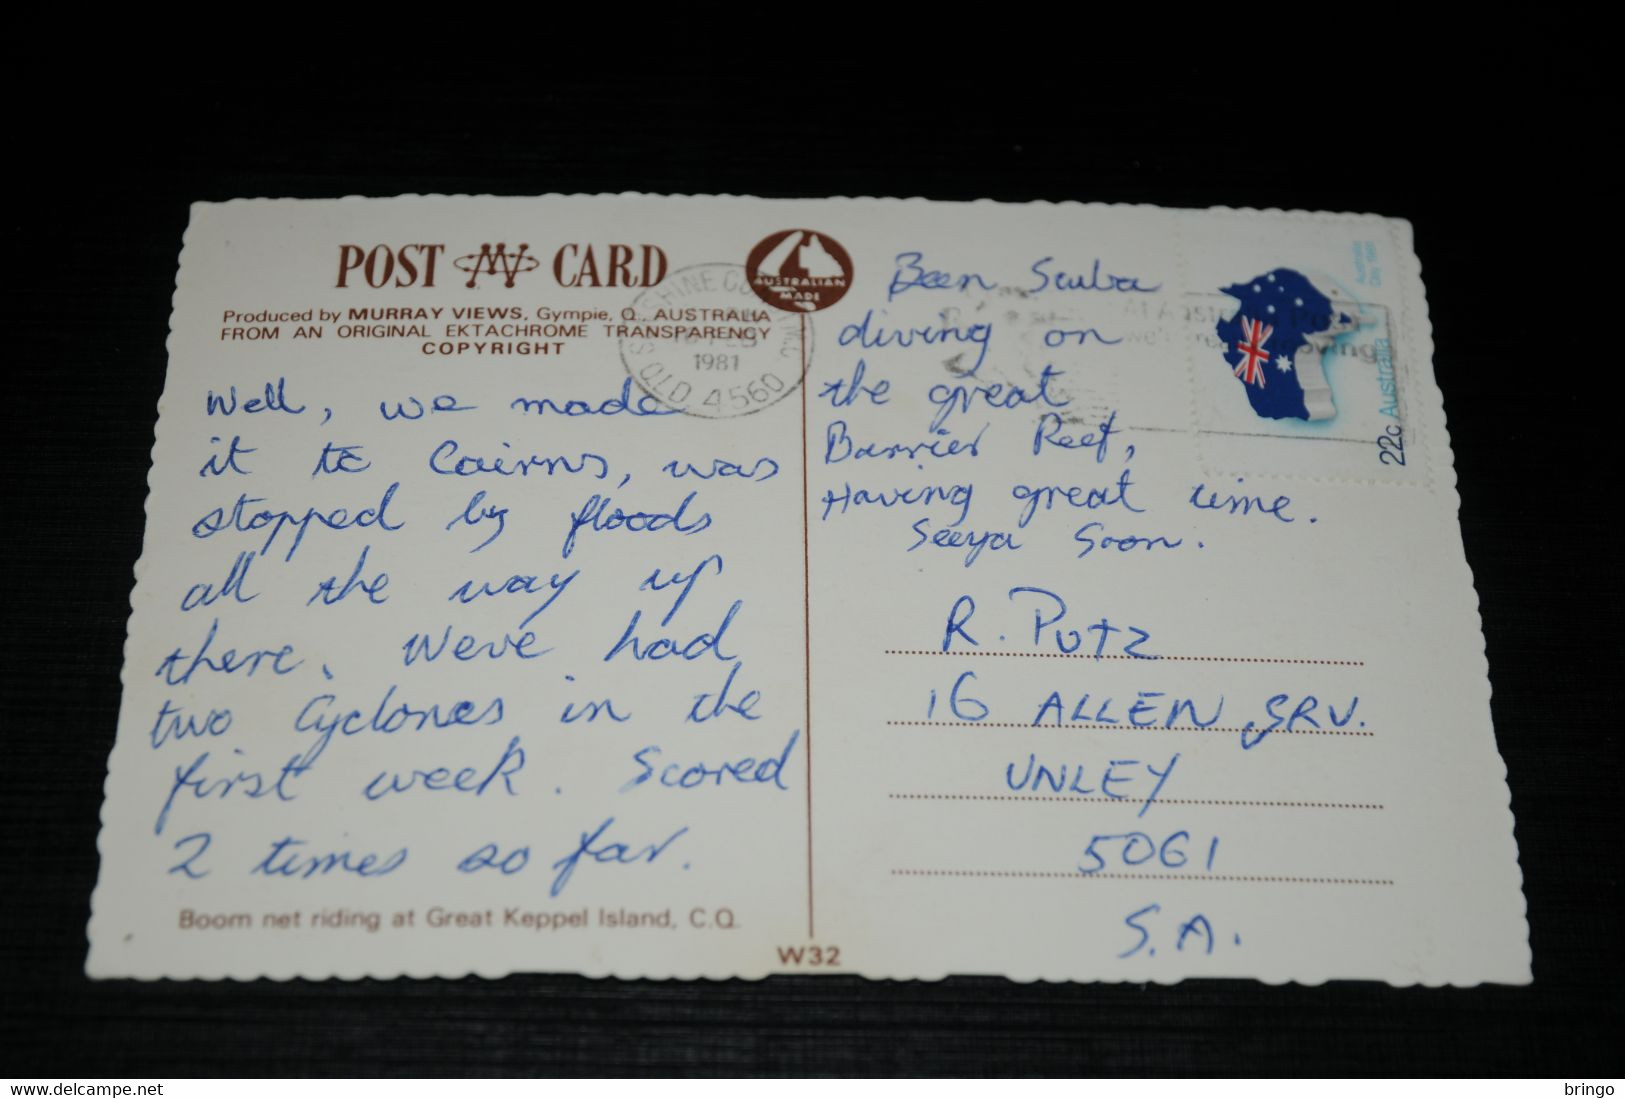 POST CARD
AUSTRALIAN
MADE
Produced by MURRAY VIEWS, Gympie, Q., AUSTRALIA
FROM AN ORIGINAL EKTACHROME TRANSPARENCY
COPYRIGHT
Well, we made
it to Cairns, was
stopped by floods
all the way up
there. Weve had
two Cyclones in the
first week. Scored
2 times so far.
Boom net riding at Great Keppel Island, C.Q.
W32
FEB
1981
QLD. 4560
Been Scuba
diving on
the great
Barrier Reef,
Having great time.
Seeya Soon.
Australia
Day 1981
22c Australia
At Australia Post
we're moving
R. Putz
16 ALLEN GRV.
UNLEY
5061
S.A.
delcampe.net
bringo